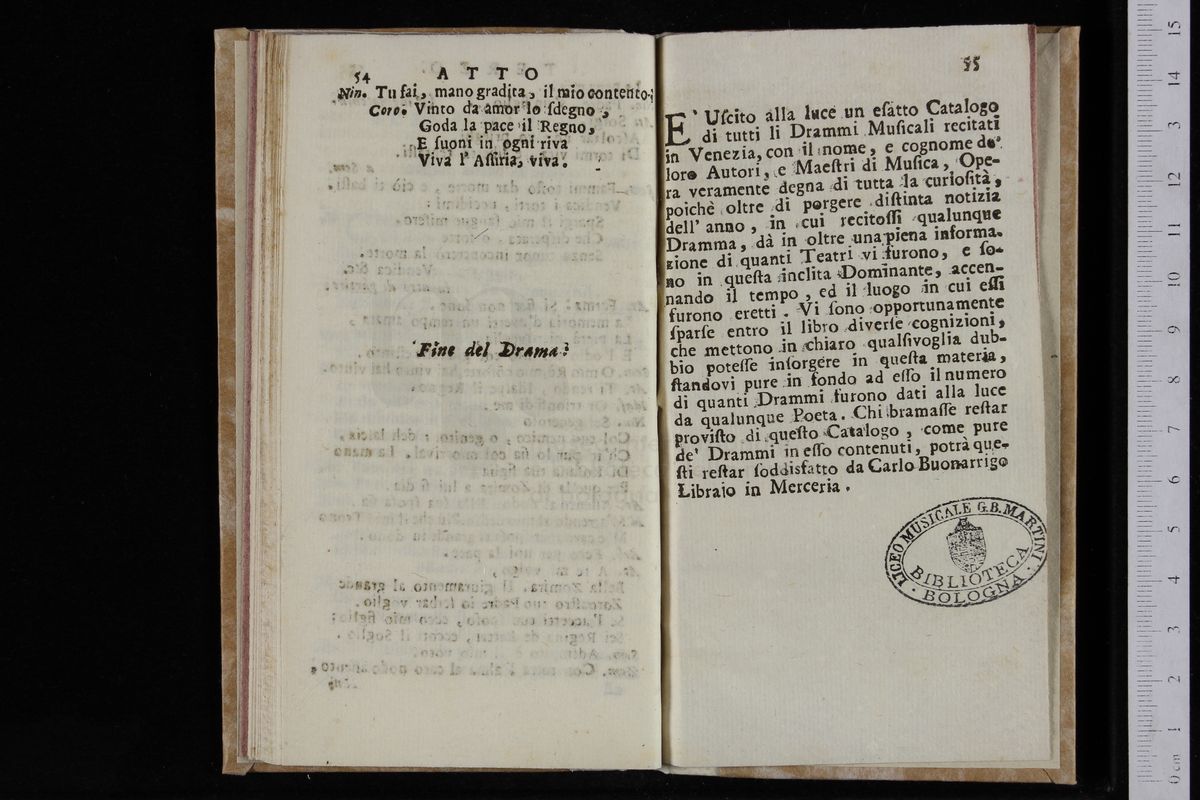 54 ATTO
Nin. Tu fai, mano gradita, il mio contento;
Coro. Vinto da amor lo ſdegno,
Goda la pace il Regno,
E ſuoni in ogni riva
Viva l'Aſſiria, viva.
Fine del Drama.
55
E' Uſcito alla luce un eſatto Catalogo
di tutti li Drammi Muſicali recitati
in Venezia, con il nome, e cognome de'
loro Autori, e Maeſtri di Muſica, Ope-
ra veramente degna di tutta la curioſità,
poichè oltre di porgere diſtinta notizia
dell' anno, in cui recitoſſi qualunque
Dramma, dà in oltre una piena informa-
zione di quanti Teatri vi furono, e ſo-
no in queſta inclita Dominante, accen-
nando il tempo, ed il luogo in cui eſſi
furono eretti. Vi ſono opportunamente
ſparſe entro il libro diverſe cognizioni,
che mettono in chiaro qualſivoglia dub-
bio poteſſe inſorgere in queſta materia,
ſtandovi pure in fondo ad eſſo il numero
di quanti Drammi furono dati alla luce
da qualunque Poeta. Chi bramaſſe reſtar
proviſto di queſto Catalogo, come pure
de' Drammi in eſſo contenuti, potrà que-
ſti reſtar ſoddisfatto da Carlo Buonarrigo
Libraio in Merceria.
LICEO MUSICALE G.B. MARTINI
BIBLIOTECA
· BOLOGNA ·
0 cm 1 2 3 4 5 6 7 8 9 10 11 12 3 14 15